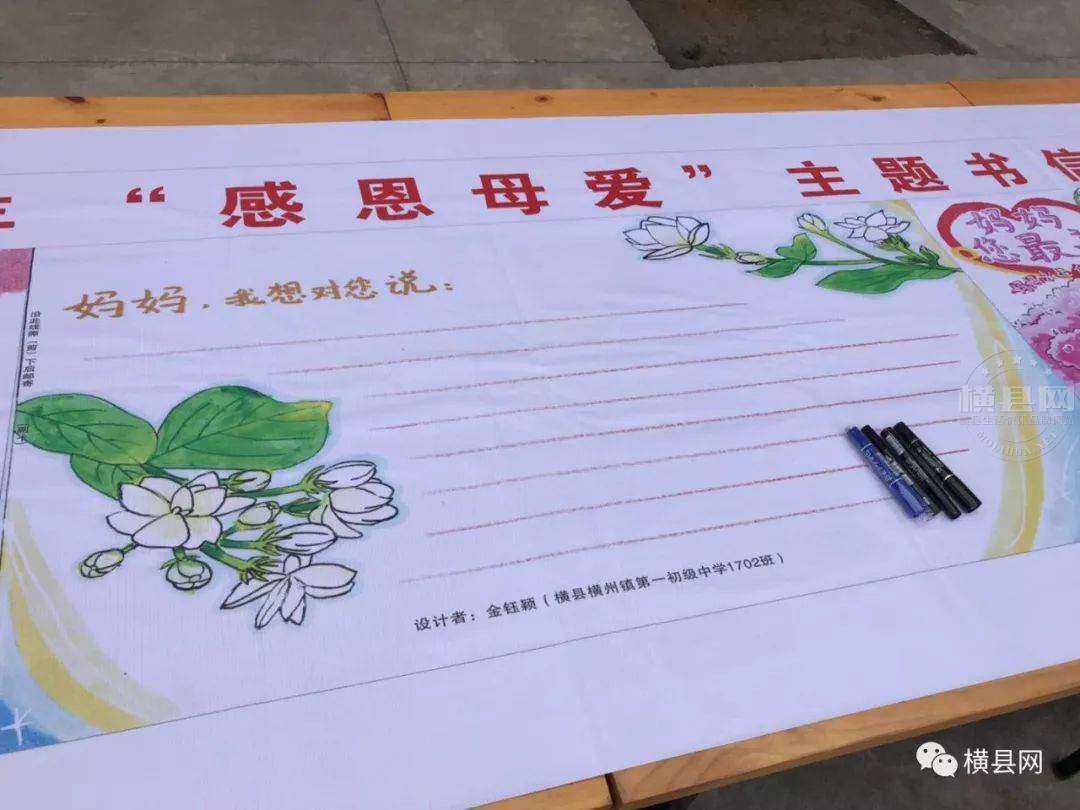 “感恩母爱”主题书信
妈妈，我想对您说：
沿此线撕（剪）下后邮寄
妈妈
您最
设计者：金钰颖（横县横州镇第一初级中学1702班）
横县网
横县网